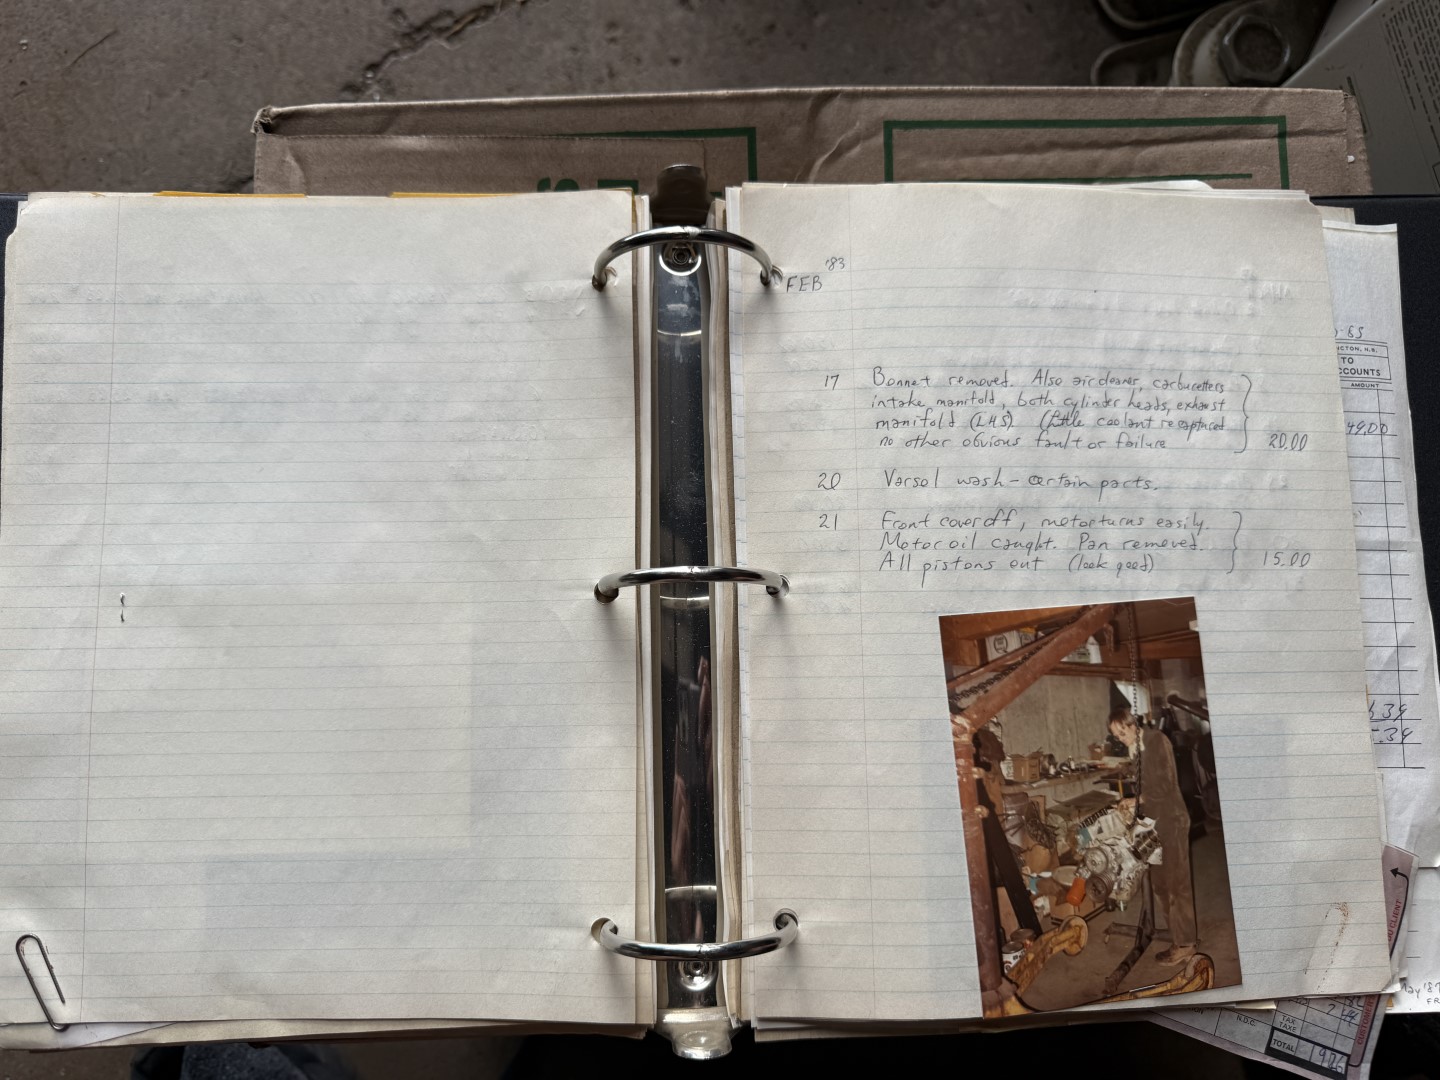 '83
FEB
17 Bonnet removed. Also air cleaner, carburetters
intake manifold, both cylinder heads, exhaust
manifold (LHS) (Little coolant recaptured
no other obvious fault or failure 20.00
20 Varsol wash - certain parts.
21 Front cover off, motor turns easily.
Motor oil caught. Pan removed.
All pistons out (look good) 15.00
-85
CTON, N.B.
TO
CCOUNTS
AMOUNT
49.00
39
.34
CLIENT
May '8
FR
N.D.C.
TAX
TAXE
TOTAL
CUSTOME